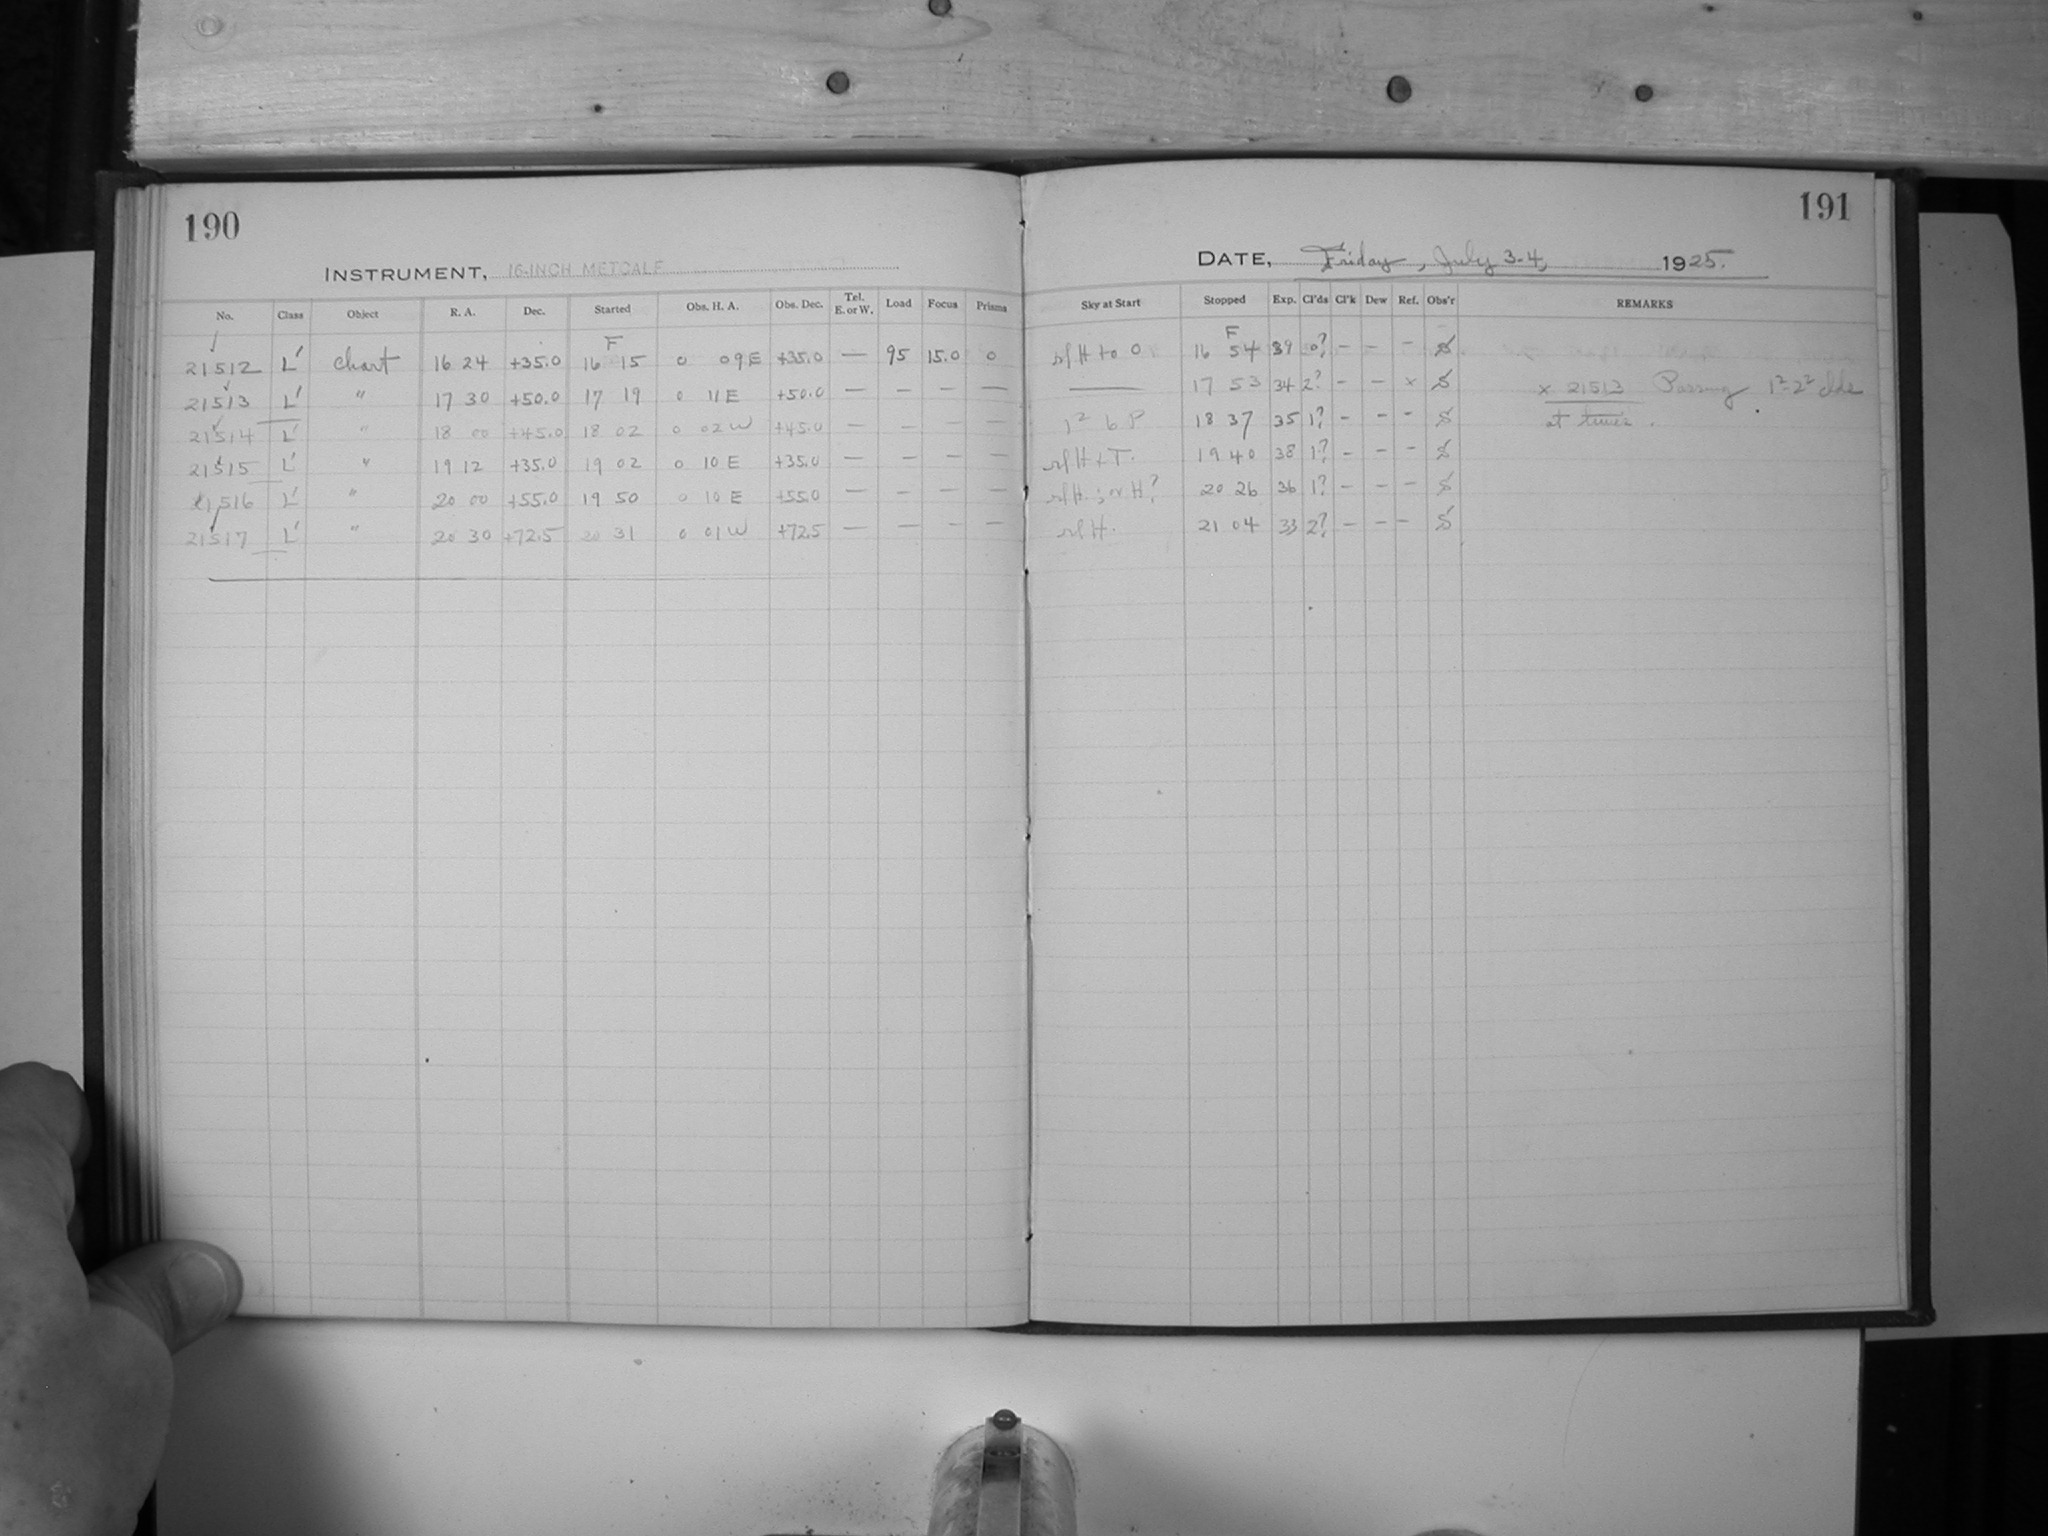 190
INSTRUMENT, 16-INCH METCALF
No. Class Object R. A. Dec. Started Obs. H. A. Obs. Dec. Tel. E. or W. Load Focus Prisms
F
21512 L' Chart 16 24 +35.0 16 15 0 09 E +35.0 — 95 15.0 0
21513 L' " 17 30 +50.0 17 19 0 11 E +50.0 — — — —
21514 L' " 18 00 +45.0 18 02 0 02 W +45.0 — — — —
21515 L' " 19 12 +35.0 19 02 0 10 E +35.0 — — — —
21516 L' " 20 00 +55.0 19 50 0 10 E +55.0 — — — —
21517 L' " 20 30 +72.5 20 31 0 01 W +72.5 — — — —
191
DATE, Friday, July 3-4, 1925.
Sky at Start Stopped Exp. Cl'ds Cl'k Dew Ref. Obs'r REMARKS
F
H to 0 16 54 39 0? – – –
—— 17 53 34 2? – – x x 21513 Passing 1²-2² clds
1² b P 18 37 35 1? – – – at times.
H + T. 19 40 38 1? – – –
H ; H? 20 26 36 1? – – –
H. 21 04 33 2? – – –